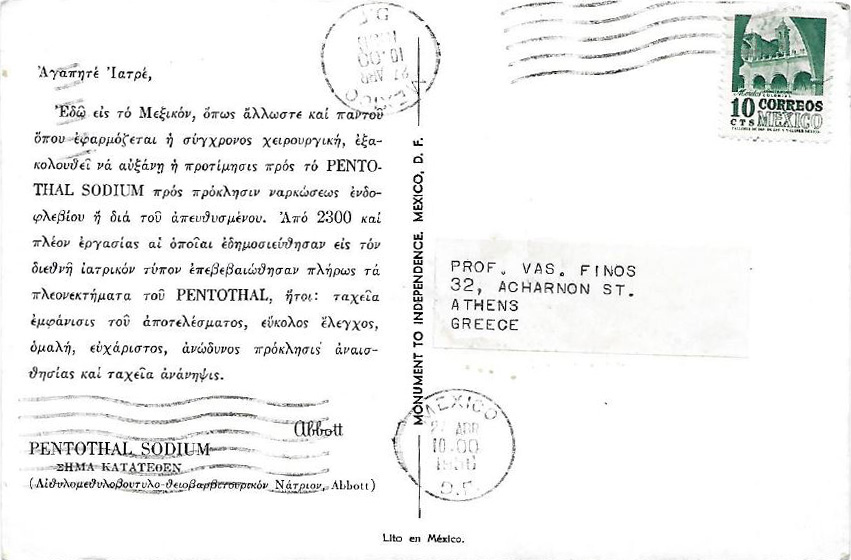 Ἀγαπητέ Ἰατρέ,
Ἐδῶ εἰς τό Μεξικόν, ὅπως ἄλλωστε καί παντοῦ
ὅπου ἐφαρμόζεται ἡ σύγχρονος χειρουργική, ἐξα-
κολουθεῖ νά αὐξάνη ἡ προτίμησις πρός τό PENTO-
THAL SODIUM πρός πρόκλησιν ναρκώσεως ἐνδο-
φλεβίου ἤ διά τοῦ ἀπευθυσμένου. Ἀπό 2300 καί
πλέον ἐργασίας αἱ ὁποῖαι ἐδημοσιεύθησαν εἰς τόν
διεθνῆ ἰατρικόν τύπον ἐπεβεβαιώθησαν πλήρως τά
πλεονεκτήματα τοῦ PENTOTHAL, ἤτοι: ταχεῖα
ἐμφάνισις τοῦ ἀποτελέσματος, εὔκολος ἔλεγχος,
ὁμαλή, εὐχάριστος, ἀνώδυνος πρόκλησις ἀναισ-
θησίας καί ταχεῖα ἀνάνηψις.
Abbott
PENTOTHAL SODIUM
ΣΗΜΑ ΚΑΤΑΤΕΘΕΝ
(Αἰθυλομεθυλοβουτυλο-θειοβαρβιτουρικόν Νάτριον, Abbott)
MONUMENT TO INDEPENDENCE. MEXICO, D. F.
MEXICO
27 ABR
10.00
D.F.
10 CORREOS
CTS MEXICO
PROF. VAS. FINOS
32, ACHARNON ST.
ATHENS
GREECE
MEXICO
ABR
10.00
D.F.
Lito en México.